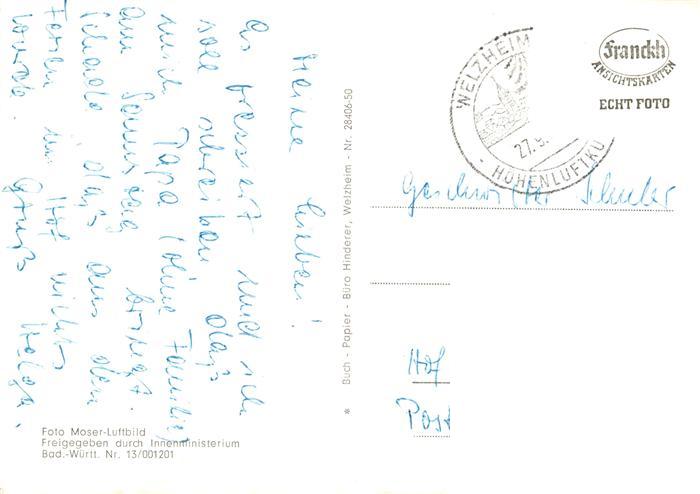 Meine Lieben!
Es pressiert und ich
soll schreiben daß
mich Papa (ohne Familie)
am Sonntag bringt.
Schade daß aus den
Ferien in Hof nichts
wurde. Gruß Helga.
Foto Moser-Luftbild
Freigegeben durch Innenministerium
Bad.-Württ. Nr. 13/001201
* Buch - Papier - Büro Hinderer, Welzheim - Nr. 28406-50
WELZHEIM
27.9.
- HÖHENLUFTKU
Franckh
ANSICHTSKARTEN
ECHT FOTO
Geschwister Schuler
Hof
Post